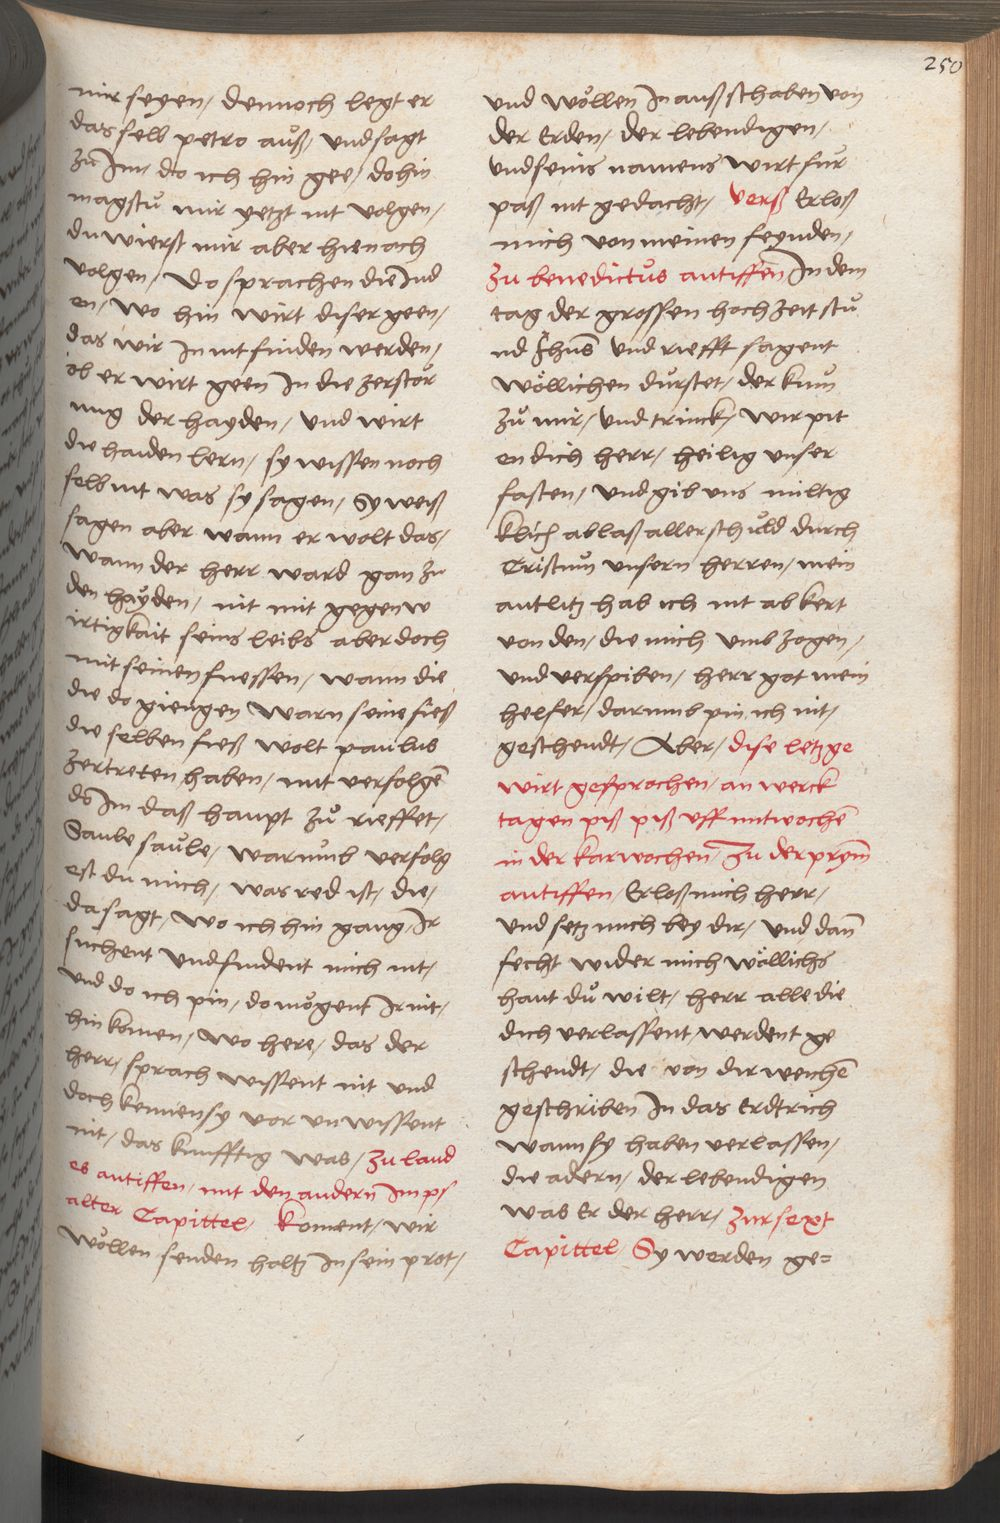 250
mir seyen / dennoch legt er
das selb petro auß / und sagt
zu Im / do ich hin gee / do hin
magstu mir yetzt nit volgen /
du wierst mir aber hienach
volgen / Do sprachen die Jud
en / wo hin wirt diser geen /
das wir In nit finden werden /
ob er wirt geen In die zerstör
ung der hayden / und wirt
die haiden lern / sy wissen noch
selb nit was sy sagen / Sy weiß
sagen aber wann er wolt das /
wann der herr ward gan zu
den hayden / nit mit gegenw
irtigkait seins leibs aber doch
mit seinen fuessen / wann die
die do giengen warn seine fieß
die selben fieß wolt paulus
zertreten haben / mit verfolgen
do Im daß haupt zů rieffet /
Saule saule / warumb verfolg
est du mich / was red ist / die /
da sagt / wo ich hin gang / Ir
suchent und findent mich nit /
und do ich pin / do mögent Ir nit /
hin komen / wo here / das der
herr / sprach wissent nit und
doch kennen sy vor unwissent
nit / das kunfftig was / Zu laud
es antiffen / mit den andern Im ps
alter Capittel / Koment / wir
wöllen senden haltz In sein prot /
und wöllen In auß schaben von
der Erden / der lebendigen /
und seins namens wirt fur
paß nit gedacht / verß Erloß
mich von meinen feynden /
Zu benedictus antiffen In dem
tag der grossen hochzeit stu
nd Jhūs und riefft sagent
wöllichen durstet / der kum
zů mir / und trinck / wir pit
en dich herr / heilig unser
fasten / und gib uns miltig
klich ablaß aller schuld durch
Cristum unsern herren / mein
antlitz hab ich nit ab kert
von den / die mich umb zogen /
und verspiben / herr got mein
helfer / darumb pin ich nit /
geschendt / Aber / dise letzge
wirt gesprochen / an werck
tagen piß piß uff mitwochē
in der karwochen / Zu der prym
antiffen / Erloß mich herr /
und setz mich bey dir / und dan̄
fecht wider mich wöllichs
hant dů wilt / herr alle die
dich verlassent / werdent ge
schendt / die von dir weichē
geschriben In das Erdtrich
wann sy haben verlassen /
die adern / der lebendigen
was Er der herr / Zur sext
Capittel Sy werden ge=